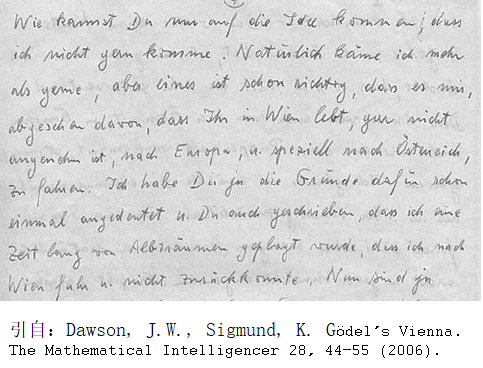 Wie kannst Du nur auf die Idee kommen, dass
ich nicht gern komme. Natürlich käme ich mehr
als gerne, aber eines ist schon richtig, dass es mir,
abgesehen davon, dass Ihr in Wien lebt, gar nicht
angenehm ist, nach Europa, u. speziell nach Österreich,
zu fahren. Ich habe Dir ja die Gründe dafür schon
einmal angedeutet u. Dir auch geschrieben, dass ich eine
Zeit lang von Albträumen geplagt wurde, dass ich nach
Wien fuhr u. nicht zurückkonnte. Nun sind ja
引自: Dawson, J.W., Sigmund, K. Gödel's Vienna.
The Mathematical Intelligencer 28, 44–55 (2006).